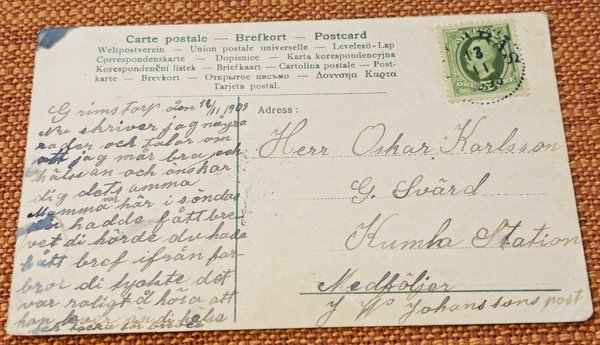 Carte postale — Brefkort — Postcard
Weltpostverein — Union postale universelle — Levelezö-Lap
Correspondenzkarte — Dopisnice — Karta korespondencyjna
Korespondenční listek — Briefkaart — Cartolina postale — Post-
karte — Brevkort — Открытое письмо — Δοννσηα Καρτα
Tarjeta postal.
Grimstorp den 12/11 1903
Nu skriver jag några
rader och talar om
att jag mår bra och
hälsan och önskar
dig dets amma
Mamma var här i söndas
hadda fått bre
vet di hörde du hade
fått bref ifrån far
bror di tyckte det
var roligt å höra att
han lever nu di helsa
Adress:
Herr Oskar Karlsson
G. Svärd
Kumla Station
Medföljer
J W Johanssons post